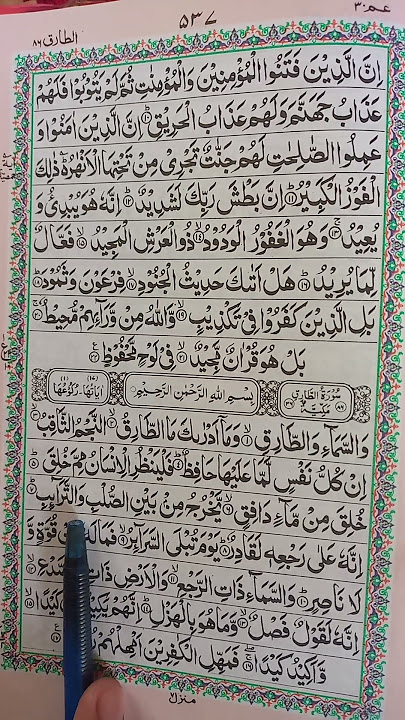 عم ٣٠
٥٣٧
الطارق ٨٦
اِنَّ الَّذِيْنَ فَتَنُوا الْمُؤْمِنِيْنَ وَالْمُؤْمِنٰتِ ثُمَّ لَمْ يَتُوْبُوْا فَلَهُمْ
عَذَابُ جَهَنَّمَ وَلَهُمْ عَذَابُ الْحَرِيْقِ ۱۰ اِنَّ الَّذِيْنَ اٰمَنُوْا وَ
عَمِلُوا الصّٰلِحٰتِ لَهُمْ جَنّٰتٌ تَجْرِيْ مِنْ تَحْتِهَا الْاَنْهٰرُ ذٰلِكَ
الْفَوْزُ الْكَبِيْرُ ۱۱ اِنَّ بَطْشَ رَبِّكَ لَشَدِيْدٌ ۱۲ اِنَّهٗ هُوَ يُبْدِئُ وَ
يُعِيْدُ ۱۳ وَهُوَ الْغَفُوْرُ الْوَدُوْدُ ۱۴ ذُو الْعَرْشِ الْمَجِيْدُ ۱۵ فَعَّالٌ
لِّمَا يُرِيْدُ ۱۶ هَلْ اَتٰىكَ حَدِيْثُ الْجُنُوْدِ ۱۷ فِرْعَوْنَ وَثَمُوْدَ ۱۸
بَلِ الَّذِيْنَ كَفَرُوْا فِيْ تَكْذِيْبٍ ۱۹ وَّاللّٰهُ مِنْ وَّرَآئِهِمْ مُّحِيْطٌ ۲۰
بَلْ هُوَ قُرْاٰنٌ مَّجِيْدٌ ۲۱ فِيْ لَوْحٍ مَّحْفُوْظٍ ۲۲
سُوْرَةُ الطَّارِقِ مَكِّيَّةٌ بِسْمِ اللّٰهِ الرَّحْمٰنِ الرَّحِيْمِ اٰيَاتُهَا (۱۷) رُكُوْعُهَا (۱)
وَالسَّمَآءِ وَالطَّارِقِ ۱ وَمَآ اَدْرٰىكَ مَا الطَّارِقُ ۲ النَّجْمُ الثَّاقِبُ ۳
اِنْ كُلُّ نَفْسٍ لَّمَّا عَلَيْهَا حَافِظٌ ۴ فَلْيَنْظُرِ الْاِنْسَانُ مِمَّ خُلِقَ ۵
خُلِقَ مِنْ مَّآءٍ دَافِقٍ ۶ يَّخْرُجُ مِنْۢ بَيْنِ الصُّلْبِ وَالتَّرَآئِبِ ۷
اِنَّهٗ عَلٰى رَجْعِهٖ لَقَادِرٌ ۸ يَوْمَ تُبْلَى السَّرَآئِرُ ۹ فَمَا لَهٗ قُوَّةٍ وَّ
لَا نَاصِرٍ ۱۰ وَالسَّمَآءِ ذَاتِ الرَّجْعِ ۱۱ وَالْاَرْضِ ذَاتِ الصَّدْعِ ۱۲
اِنَّهٗ لَقَوْلٌ فَصْلٌ ۱۳ وَّمَا هُوَ بِالْهَزْلِ ۱۴ اِنَّهُمْ يَكِيْدُوْنَ كَيْدًا ۱۵
وَّاَكِيْدُ كَيْدًا ۱۶ فَمَهِّلِ الْكٰفِرِيْنَ اَمْهِلْهُمْ
منزل